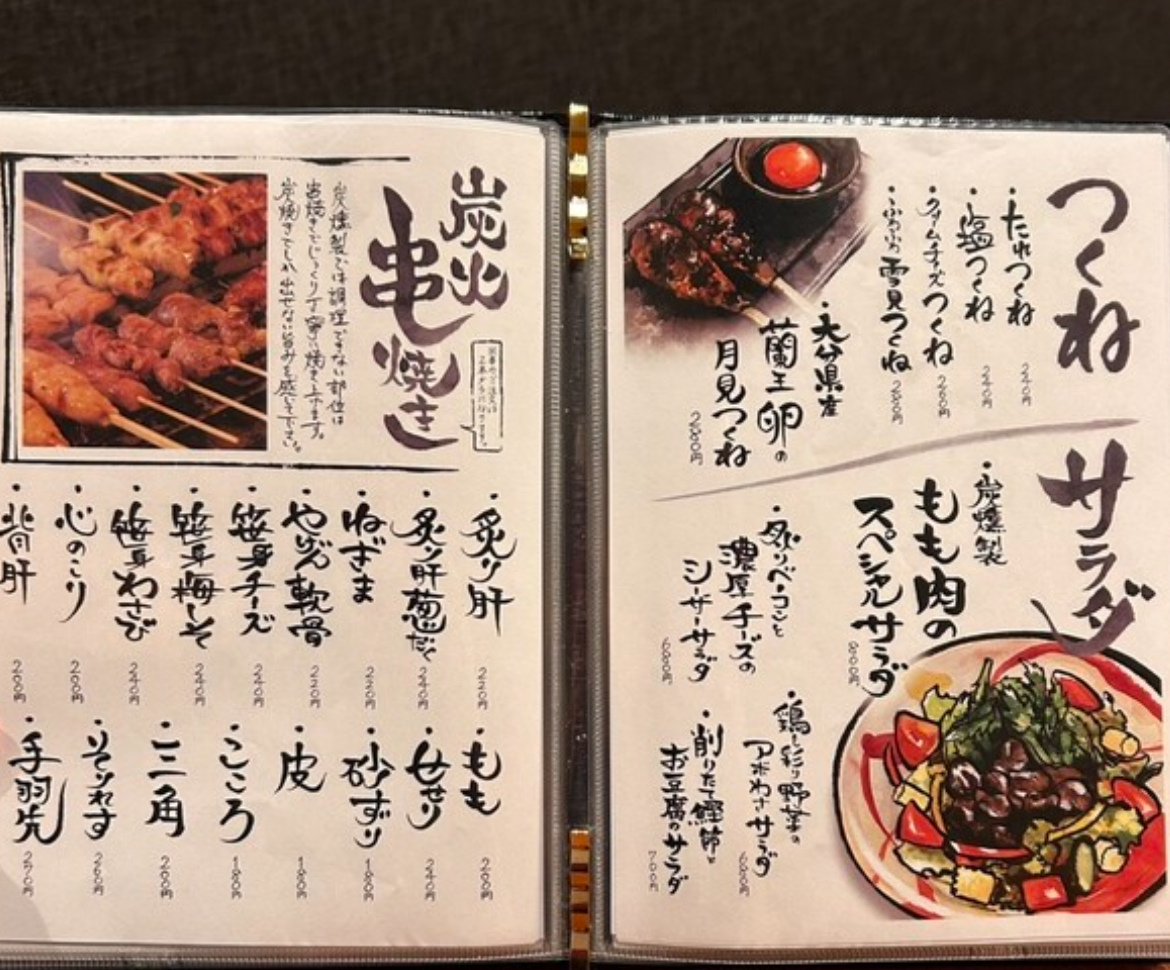 炭火
串焼き
炭燻製では調理できない部位は
串焼きでじっくり丁寧に焼き上げます。
炭焼きでしか出せない旨みを感じて下さい。
・炙り肝
220円
・炙り肝葱だく
240円
・ねぎま
220円
・やげん軟骨
220円
・笹身チーズ
240円
・笹身梅しそ
240円
・笹身わさび
240円
・心のこり
200円
・背肝
200円
・もも
200円
・せせり
240円
・砂ずり
180円
・皮
180円
・こころ
180円
・三角
200円
・そりれす
260円
・手羽先
270円
つくね
・たれつくね
240円
・塩つくね
240円
・クリームチーズつくね
260円
・ふわふわ雪見つくね
280円
・大分県産
蘭王卵の
月見つくね
280円
サラダ
・炭燻製
もも肉の
スペシャルサラダ
800円
・炙りベーコンと
濃厚チーズの
シーザーサラダ
680円
・鶏と彩り野菜の
アボわさサラダ
680円
・削りたて鰹節と
お豆腐のサラダ
700円